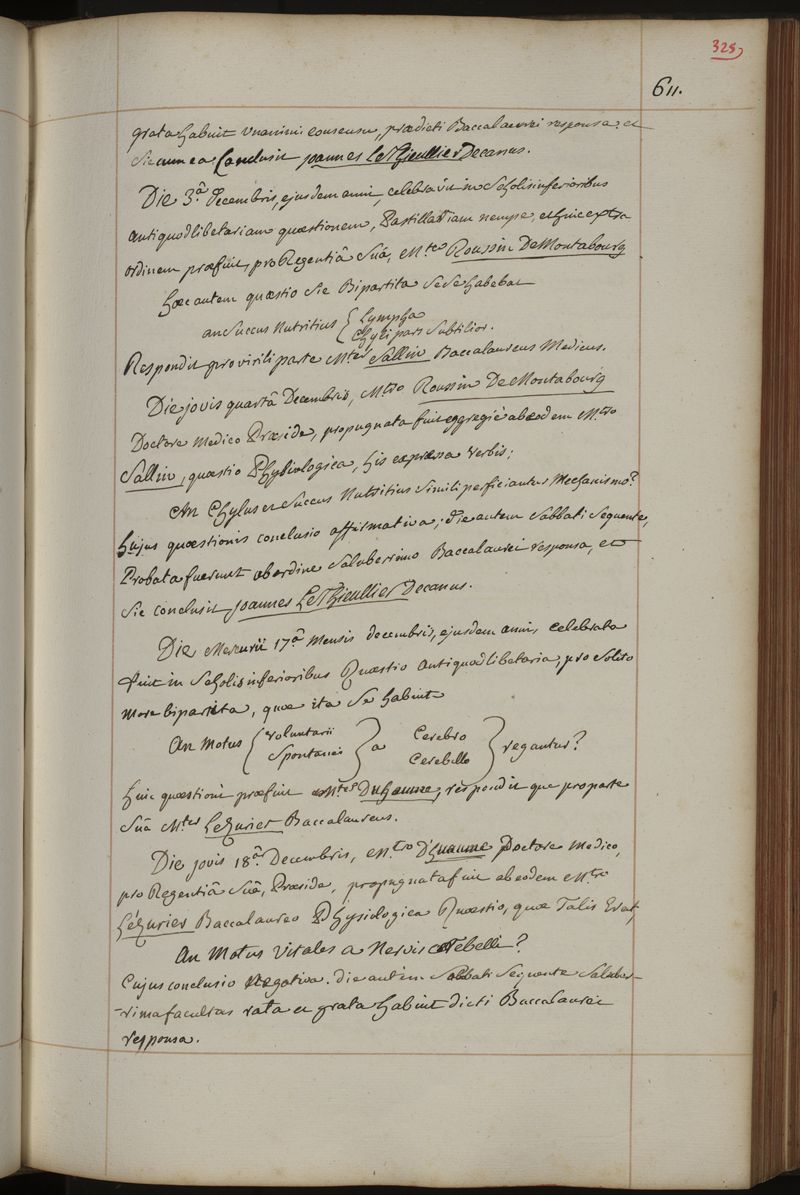 325
611.
grata habuit unanimi consensu, prædicti Baccalaurei responsa. et
Sic cum ea Conclusit joannes Le Thieullier Decanus.
Die 3.a decembris, ejusdem anni, celebravit in Scholis inferioribus
antiquodlibetariam quæstionem, Pastillariam nempe, et huic extra
ordinem præfuit, pro Regentiâ Suâ, M.ter Roussin De Montabourg
hæc autem quæstio Sic Bipartita Sese habebat
an Succus Nutritius { Lympha
Chyli pars Subtilior.
Respondit pro virili parte M.ter Sallin Baccalaureus Medicus.
Die jovis quartâ Decembris, M.tro Roussin De Montabourg
Doctore Medico Præside, propugnata fuit eggregiè ab eodem M.tro
Sallin, quæstio Physiologica, his expressa verbis;
An Chylus et Succus Nutritius Simili perficiantur Mechanismo?
hujus quæstionis conclusio affirmativa, die autem Sabbati Sequente,
Probata fuerunt ab ordine Saluberrimo Baccalaurei responsa, et
Sic conclusit joannes Le Thieullier Decanus.
Die Mercurii 17.a Mensis decembris, ejusdem anni, celebrata
fuit in Scholis inferioribus Quæstio antiquodlibetaria, pro Solito
more bipartita, quæ ita Se habuit
An Motus { voluntarii
Spontanei } a Cerebro
Cerebello } regantur?
huic quæstioni præfuit M.ter Duhaume, respondit que pro parte
Suâ M.ter Lezurier Baccalaureus.
Die jovis 18.a Decembris, M.tro D'huaume Doctore Medico,
pro Regentiâ Suâ, Præside, propugnata fuit ab eodem M.tro
Lézurier Baccalaureo Physiologica Quæstio, quæ Talis Erat,
An Motus vitales a Nervis Cerebelli?
Cujus conclusio Negativa. die autem Sabbati Sequente Saluber-
-rima facultas rata et grata habuit dicti Baccalaurei
responsa.